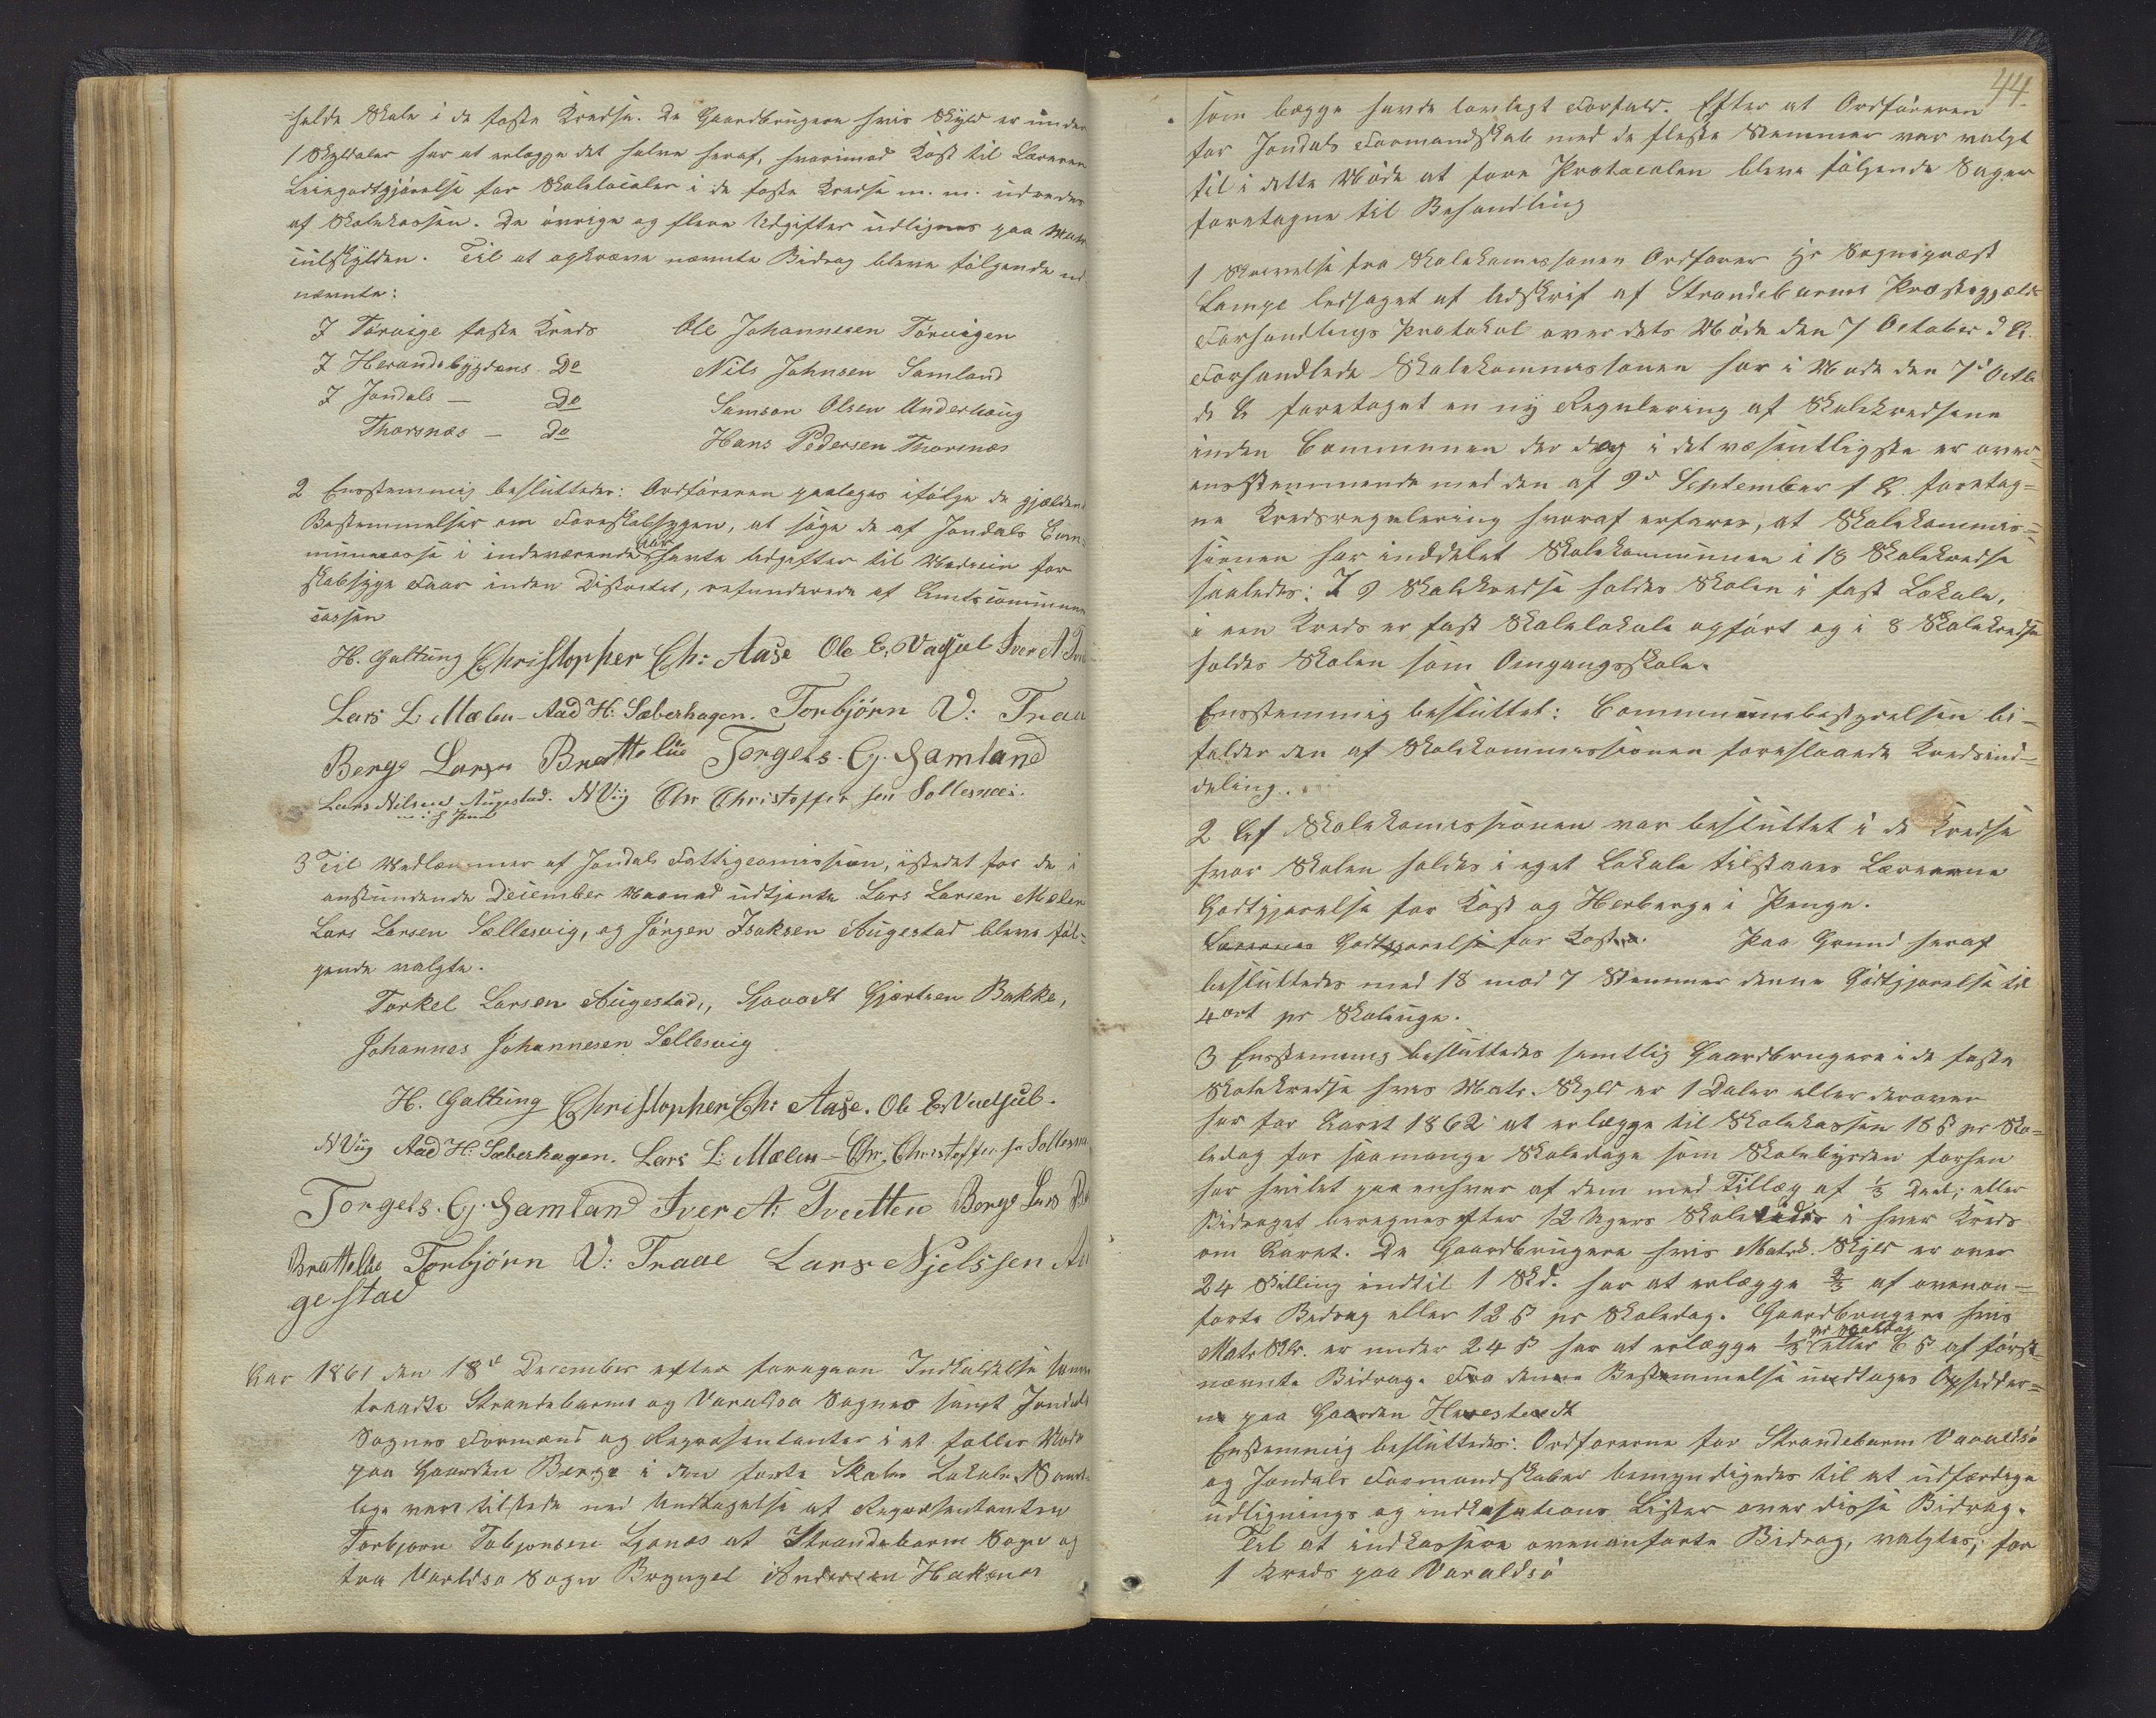 holde Skole i de faste Kredse. De Gaardbrugere hvis Skyld er under
1 Skyldaler har at erlægge det halve heraf, hvorimod Kost til Læreren
Leiegodtgjörelse for Skolelocaler i de faste Kredse m. m. udredes
af Skolekassen. De övrige og flere Udgifter udlignes paa Matri
culskylden. Til at opkræve nævnte Bidrag bleve fölgende ud
nævnte:
I Törvige faste Kreds Ole Johannesen Törvigen
I Herandsbygdens Do Nils Johnsen Samland
I Jondals — Do Samson Olsen Underhaug
Thorsnæs — do Hans Pedersen Thorsnæs
2 Eensstemmig besluttedes: Ordföreren paalægges ifölge de gjældende
Bestemmelser om Faareskabsygen, at söge de af Jondals Com-
munecasse i indeværende Aar havte Udgifter til Medicin for
skabsyge Faar inden Districtet, refunderede af Amtscommune
cassen
H. Galtung Christopher Ch: Aase Ole E. Vassel Iver A. Tve
Lars L. Mælen - Aad H: Sæberhagen. Torbjörn V: Traae
Berge Larsen Brattelie Torgels. G. Samland
Lars Nilsen Augestad. N Viig Chr Christoffer sen Sollesnes.
3 Til Medlemmer af Jondals Fattigcomission, istedet for de i
anstundende December Maaned udtjente Lars Larsen Mælen
Lars Larsen Sællesvig, og Jörgen Isaksen Augestad bleve föl-
gende valgte.
Torkel Larsen Augestad, Govert Gjertsen Bakke,
Johannes Johannesen Sællesvig
H. Galtung Christopher Ch: Aase. Ole E. Vassel.
N Viig Aad H: Sæberhagen. Lars L: Mælen - Chr. Christoffer sen Sollesnæ
Torgels. G. Samland Iver A: Tveitten Berge Lars
Brattelie Torbjörn V: Traae Lars Njelssen Au
gestad
Aar 1861 den 18d December efter foregaaen Indkaldelse sam
traadte Strandebarms og Varaldsö Sognes samt Jondals
Sognes Formænd og Repræsentanter i et fælles Möde
paa Gaarden Berge i den faste Skoles Lokale. Samt-
lige vare tilstede med Undtagelse af Repræsentanten
Torbjörn Tobjönsen Ljonæs af Strandebarms Sogn og
fra Varldsö Sogn Brynjel Andersen Hakenæs
44.
som begge havde lovligt Forfald. Efter at Ordföreren
for Jondals Formandskab med de fleste Stemmer var valgt
til i dette Möde at före Protocolen bleve fölgende Sager
foretagne til Behandling
1 Skrivelse fra Skolekomissionen Ordförer Hr Sognepræst
Lampe ledsaget af Udskrift af Strandebarms Præstegjælds
Forhandlings Protokol over dets Möde den 7 October d A.
Forhandlede Skolekommissionen har i Möde den 7d Octb
d A foretaget en ny Regulering af Skolekredsene
inden Communen der dog i det væsentligste er over-
ensstemmende med den af 9d September f A. foretag-
ne Kredsregulering hvoraf erfares, at Skolekommis-
sionen har inddelet Skolekommunen i 18 Skolekredse
saaledes: I 9 Skolekredse holdes Skolen i fast Lokale,
i een Kreds er fast Skolelokale opfört og i 8 Skolekredse
holdes Skolen som Omgangsskole.
Eensstemmig besluttet: Communebestyrelsen bi-
falder den af Skolekommissionen foreslaaede Kredsind-
deling.
2 Af Skolekomissionen var besluttet i de Kredse
hvor Skolen holdes i eget Lokale tilstaaes Lærerne
Godtgjörelse for Kost og Herberge i Penge.
Lærernes Godtgjörelse for Kost. Paa Grund heraf
besluttedes med 18 mod 7 Stemmer denne Godtgjörelse til
4 ort pr Skoleuge.
3 Eensstemmig besluttedes samtlig Gaardbrugere i de faste
Skolekredse hvis Matr. Skyld er 1 Daler eller derover
har for Aaret 1862 at erlægge til Skolekassen 18 ß pr Sko-
ledag for saamange Skoledage som Skolebyrden forhen
har hvilet paa enhver af dem med Tillæg af 1/3 Deel; eller
Bidraget beregnes efter 12 Ugers Skoletider i hver Kreds
om Aaret. De Gaardbrugere hvis Matrk. Skyld er over
24 Skilling indtil 1 Skd. har at erlægge 2/3 af ovenan-
förte Bidrag eller 12 ß pr Skoledag. Gaardbrugere hvis
Matr Sk. er under 24 ß har at erlægge 1/3 eller 6 ß af först-
nævnte Bidrag. Fra denne Bestemmelse undtages Opsidder-
ne paa Gaarden Herestvedt
Enstemmig besluttedes: Ordförerne for Strandebarm Varaldsö
og Jondals Formandskaber bemyndigedes til at udfærdige
udlignings og indkasations Lister over disse Bidrag.
Til at indkassere ovenanförte Bidrag, valgtes, for
1 Kreds paa Varaldsö